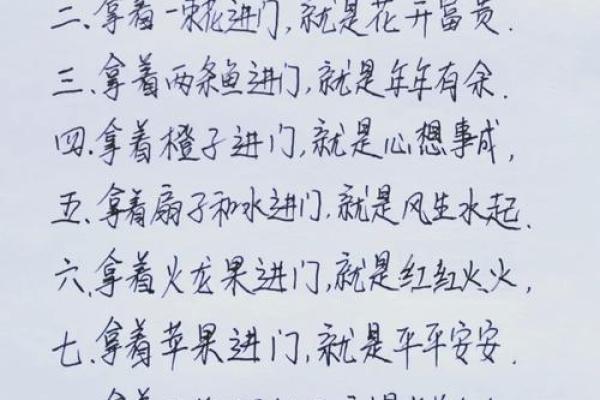 二、拿着一束花进门,就是花开富贵.
三、拿着两条鱼进门,就是年年有余.
四.拿着橙子进门,就是心想事成,
五、拿着扇子和水进门,就是风生水起.
六.拿着火龙果进门,就是红红火火,
七.拿着苹果进门,就是平平安安.